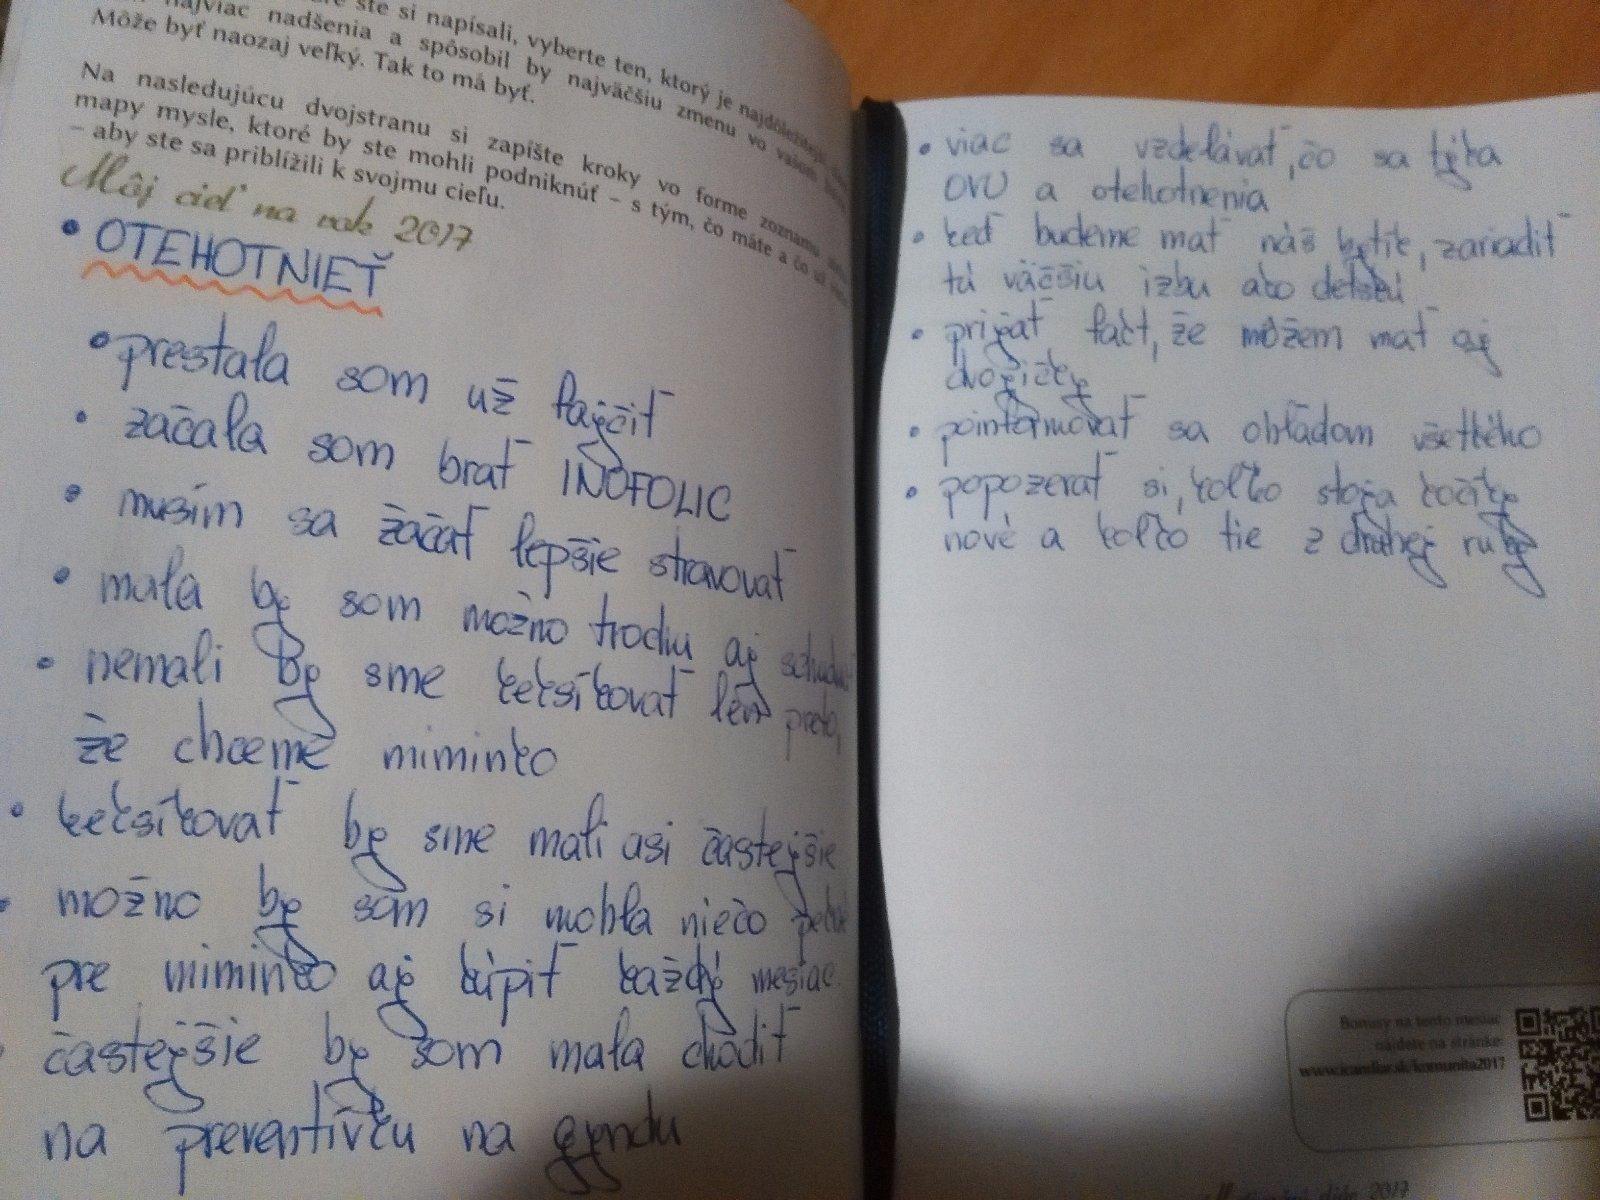 ste si napísali, vyberte ten, ktorý je najdôležitejší
najviac nadšenia a spôsobil by najväčšiu zmenu vo vašom
Môže byť naozaj veľký. Tak to má byť.
Na nasledujúcu dvojstranu si zapíšte kroky vo forme zoznamu
mapy mysle, ktoré by ste mohli podniknúť – s tým, čo máte a čo už
– aby ste sa priblížili k svojmu cieľu.
Môj cieľ na rok 2017
• OTEHOTNIEŤ
• prestala som už fajčiť
• začala som brať INOFOLIC
• musím sa začať lepšie stravovať
• mala by som možno trochu aj schudnúť
• nemali by sme keksíkovať len preto,
že chceme miminko
• keksíkovať by sme mali asi častejšie
• možno by som si mohla niečo pekné
pre miminko aj kúpiť každý mesiac
• častejšie by som mala chodiť
na preventívku na gyndu
• viac sa vzdelávať, čo sa týka
OVU a otehotnenia
• keď budeme mať náš bytík, zariadiť
tú väčšiu izbu ako detskú
• prijať fakt, že môžem mať aj
dvojičky
• poinformovať sa ohľadom všetkého
• popozerať si, koľko stoja kočíky
nové a koľko tie z druhej ruky
Bonusy na tento mesiac
nájdete na stránke:
www.icandiar.sk/komunita2017
2017